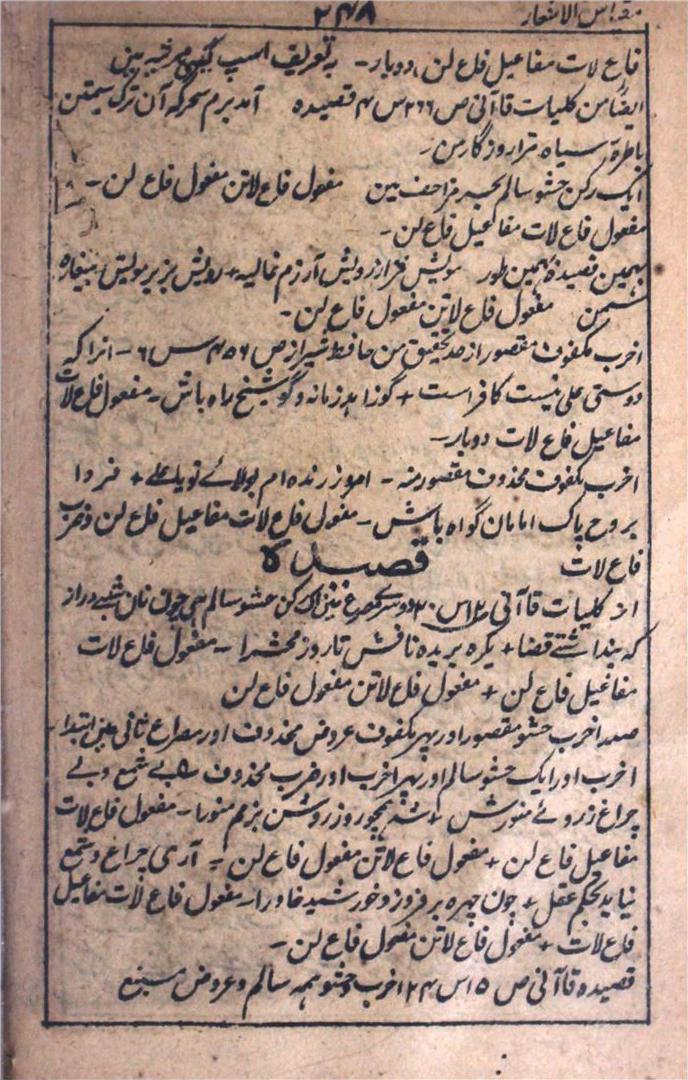 مقیاس الاشعار ۲۴۸
فاع لات مفاعیل فاع لن، دوبار - به تعریف اسپ
ایضاً من کلیات قاآنی ص ۲۶۶ س ۴ قصیده آمد برم سحرگه آن ترک سیمتن
باطرهٔ سیاه تر از روزگار من -
ایک رکن حشو سالم مزاحف بین مفعول فاع لاتن مفعول فاع لن -
مفعول فاع لات مفاعیل فاع لن -
بهمین قصیده بهمین طور مویش فراز رویش آرزم نمالیه + رویش بزیر مویش
مثمن مفعول فاع لاتن مفعول فاع لن -
اخرب مکفوف مقصور از صد تحقیق من حافظ شیراز ص ۴۵۶ س ۶ - انرا که
دوستی علی نیست کافر است + گو زاهد زمانه و گو شیخ راه باش - مفعول فاع لات
مفاعیل فاع لات دوبار -
اخرب مکفوف محذوف مقصور منه - امروز زنده ام بولائے تو یا علے + فردا
بروح پاک امامان گواه باش - مفعول فاع لات مفاعیل فاع لن و ضرب
فاع لات قصیده
از کلیات قاآنی س ۲۰ دوسرے مصرع مین اک رکن حشو سالم هی چون نان شب دراز
که پنداشتے قضا + یکره بریده نافش تا روز محشرا - مفعول فاع لات
مفاعیل فاع لن + مفعول فاع لاتن مفعول فاع لن
صدر اخرب حشو مقصور اور پهر مکفوف عروض محذوف اور مصراع ثانی مین ابتدا
اخرب اور ایک حشو سالم اور پهر اخرب اور ضرب محذوف بے شمع و بے
چراغ ز روئے منورش + شد همچو روز روشن بزم منورا - مفعول فاع لات
مفاعیل فاع لن + مفعول فاع لاتن مفعول فاع لن - آری چراغ و شمع
نیاید بحکم عقل + چون چهره بر فروزد خورشید خاورا - مفعول فاع لات مفاعیل
فاع لات + مفعول فاع لاتن مفعول فاع لن -
قصیده قاآنی ص ۱۵ س ۲۴ اخرب و حشو همه سالم و عروض مسبغ